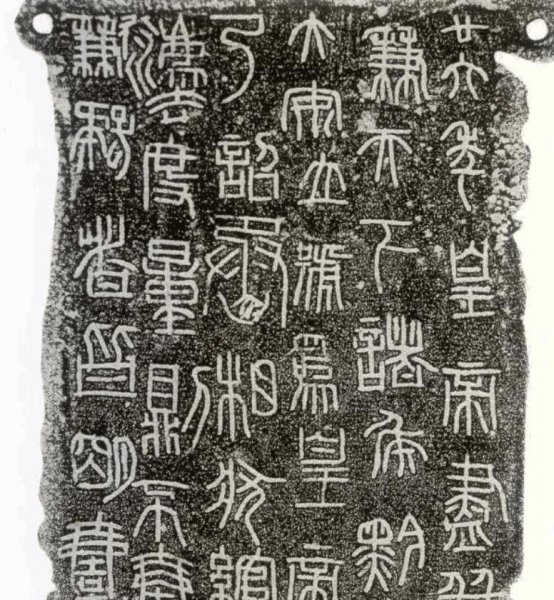 廿六年皇帝盡并
兼天下諸侯黔
大安立號為皇帝
乃詔丞相狀綰
灋度量則不壹
歉疑者皆明壹